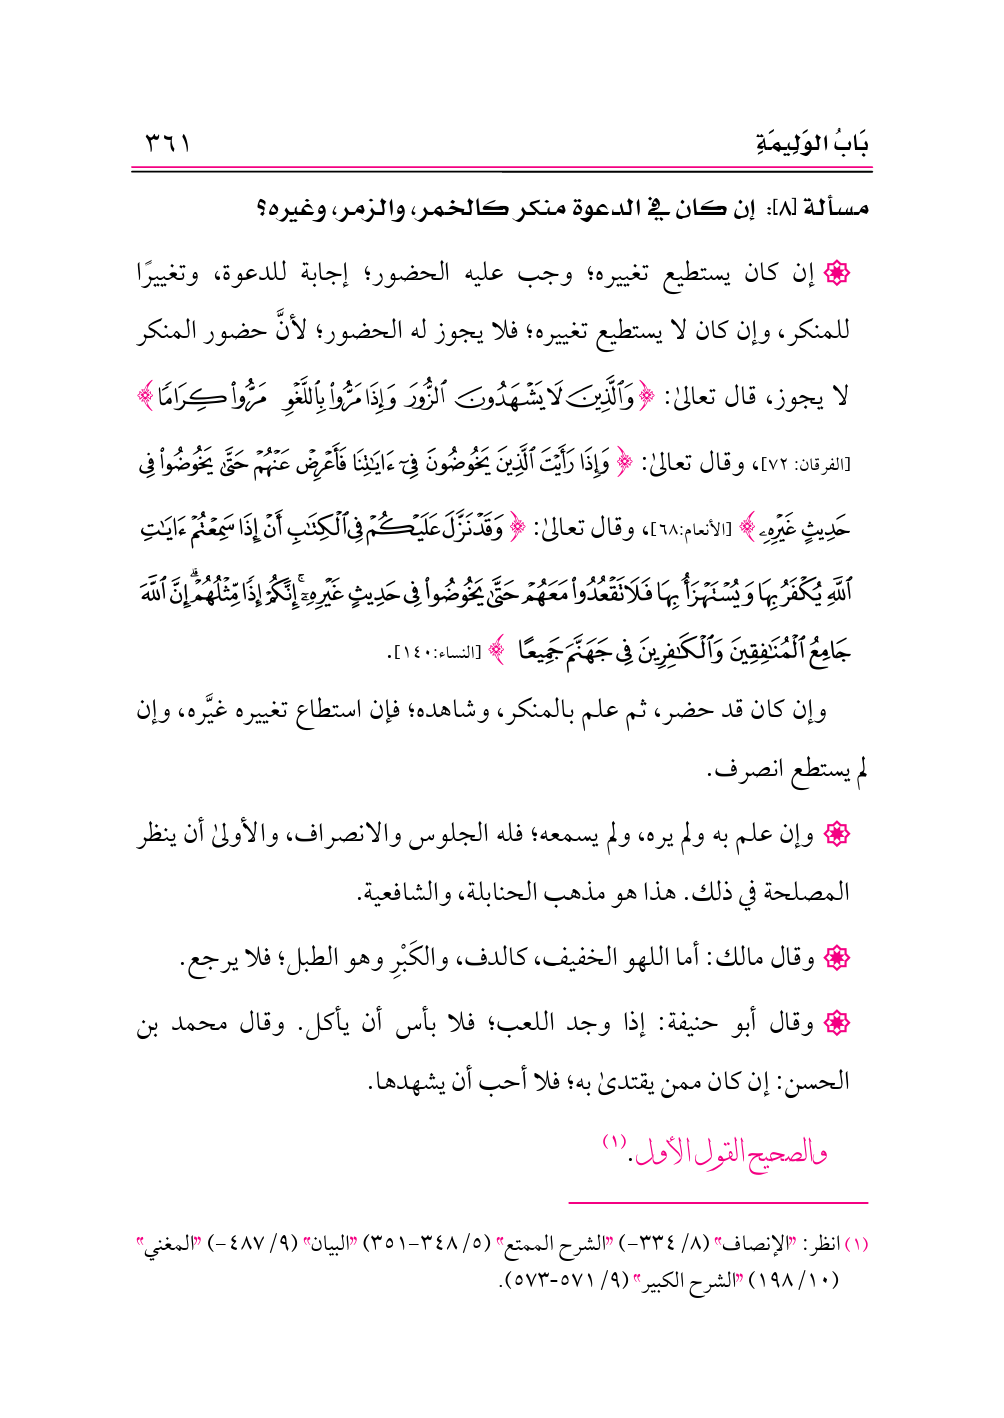 بَابُ الوَلِيمَةِ ٣٦١
مسألة [٨]: إن كان في الدعوة منكر كالخمر، والزمر، وغيره؟
إن كان يستطيع تغييره؛ وجب عليه الحضور؛ إجابة للدعوة، وتغييرًا
للمنكر، وإن كان لا يستطيع تغييره؛ فلا يجوز له الحضور؛ لأنَّ حضور المنكر
لا يجوز، قال تعالىٰ: ﴿وَٱلَّذِينَ لَا يَشْهَدُونَ ٱلزُّورَ وَإِذَا مَرُّوا۟ بِٱللَّغْوِ مَرُّوا۟ كِرَامًا﴾
[الفرقان: ٧٢]، وقال تعالىٰ: ﴿وَإِذَا رَأَيْتَ ٱلَّذِينَ يَخُوضُونَ فِىٓ ءَايَٰتِنَا فَأَعْرِضْ عَنْهُمْ حَتَّىٰ يَخُوضُوا۟ فِى
حَدِيثٍ غَيْرِهِۦ﴾ [الأنعام:٦٨]، وقال تعالىٰ: ﴿وَقَدْ نَزَّلَ عَلَيْكُمْ فِى ٱلْكِتَٰبِ أَنْ إِذَا سَمِعْتُمْ ءَايَٰتِ
ٱللَّهِ يُكْفَرُ بِهَا وَيُسْتَهْزَأُ بِهَا فَلَا تَقْعُدُوا۟ مَعَهُمْ حَتَّىٰ يَخُوضُوا۟ فِى حَدِيثٍ غَيْرِهِۦٓ ۚ إِنَّكُمْ إِذًا مِّثْلُهُمْ ۗ إِنَّ ٱللَّهَ
جَامِعُ ٱلْمُنَٰفِقِينَ وَٱلْكَٰفِرِينَ فِى جَهَنَّمَ جَمِيعًا﴾ [النساء:١٤٠].
وإن كان قد حضر، ثم علم بالمنكر، وشاهده؛ فإن استطاع تغييره غيَّره، وإن
لم يستطع انصرف.
وإن علم به ولم يره، ولم يسمعه؛ فله الجلوس والانصراف، والأولىٰ أن ينظر
المصلحة في ذلك. هذا هو مذهب الحنابلة، والشافعية.
وقال مالك: أما اللهو الخفيف، كالدف، والكَبْرِ وهو الطبل؛ فلا يرجع.
وقال أبو حنيفة: إذا وجد اللعب؛ فلا بأس أن يأكل. وقال محمد بن
الحسن: إن كان ممن يقتدىٰ به؛ فلا أحب أن يشهدها.
والصحيح القول الأول.(١)
(١) انظر: "الإنصاف" (٨/ ٣٣٤-) "الشرح الممتع" (٥/ ٣٤٨-٣٥١) "البيان" (٩/ ٤٨٧-) "المغني"
(١٠/ ١٩٨) "الشرح الكبير" (٩/ ٥٧١-٥٧٣).